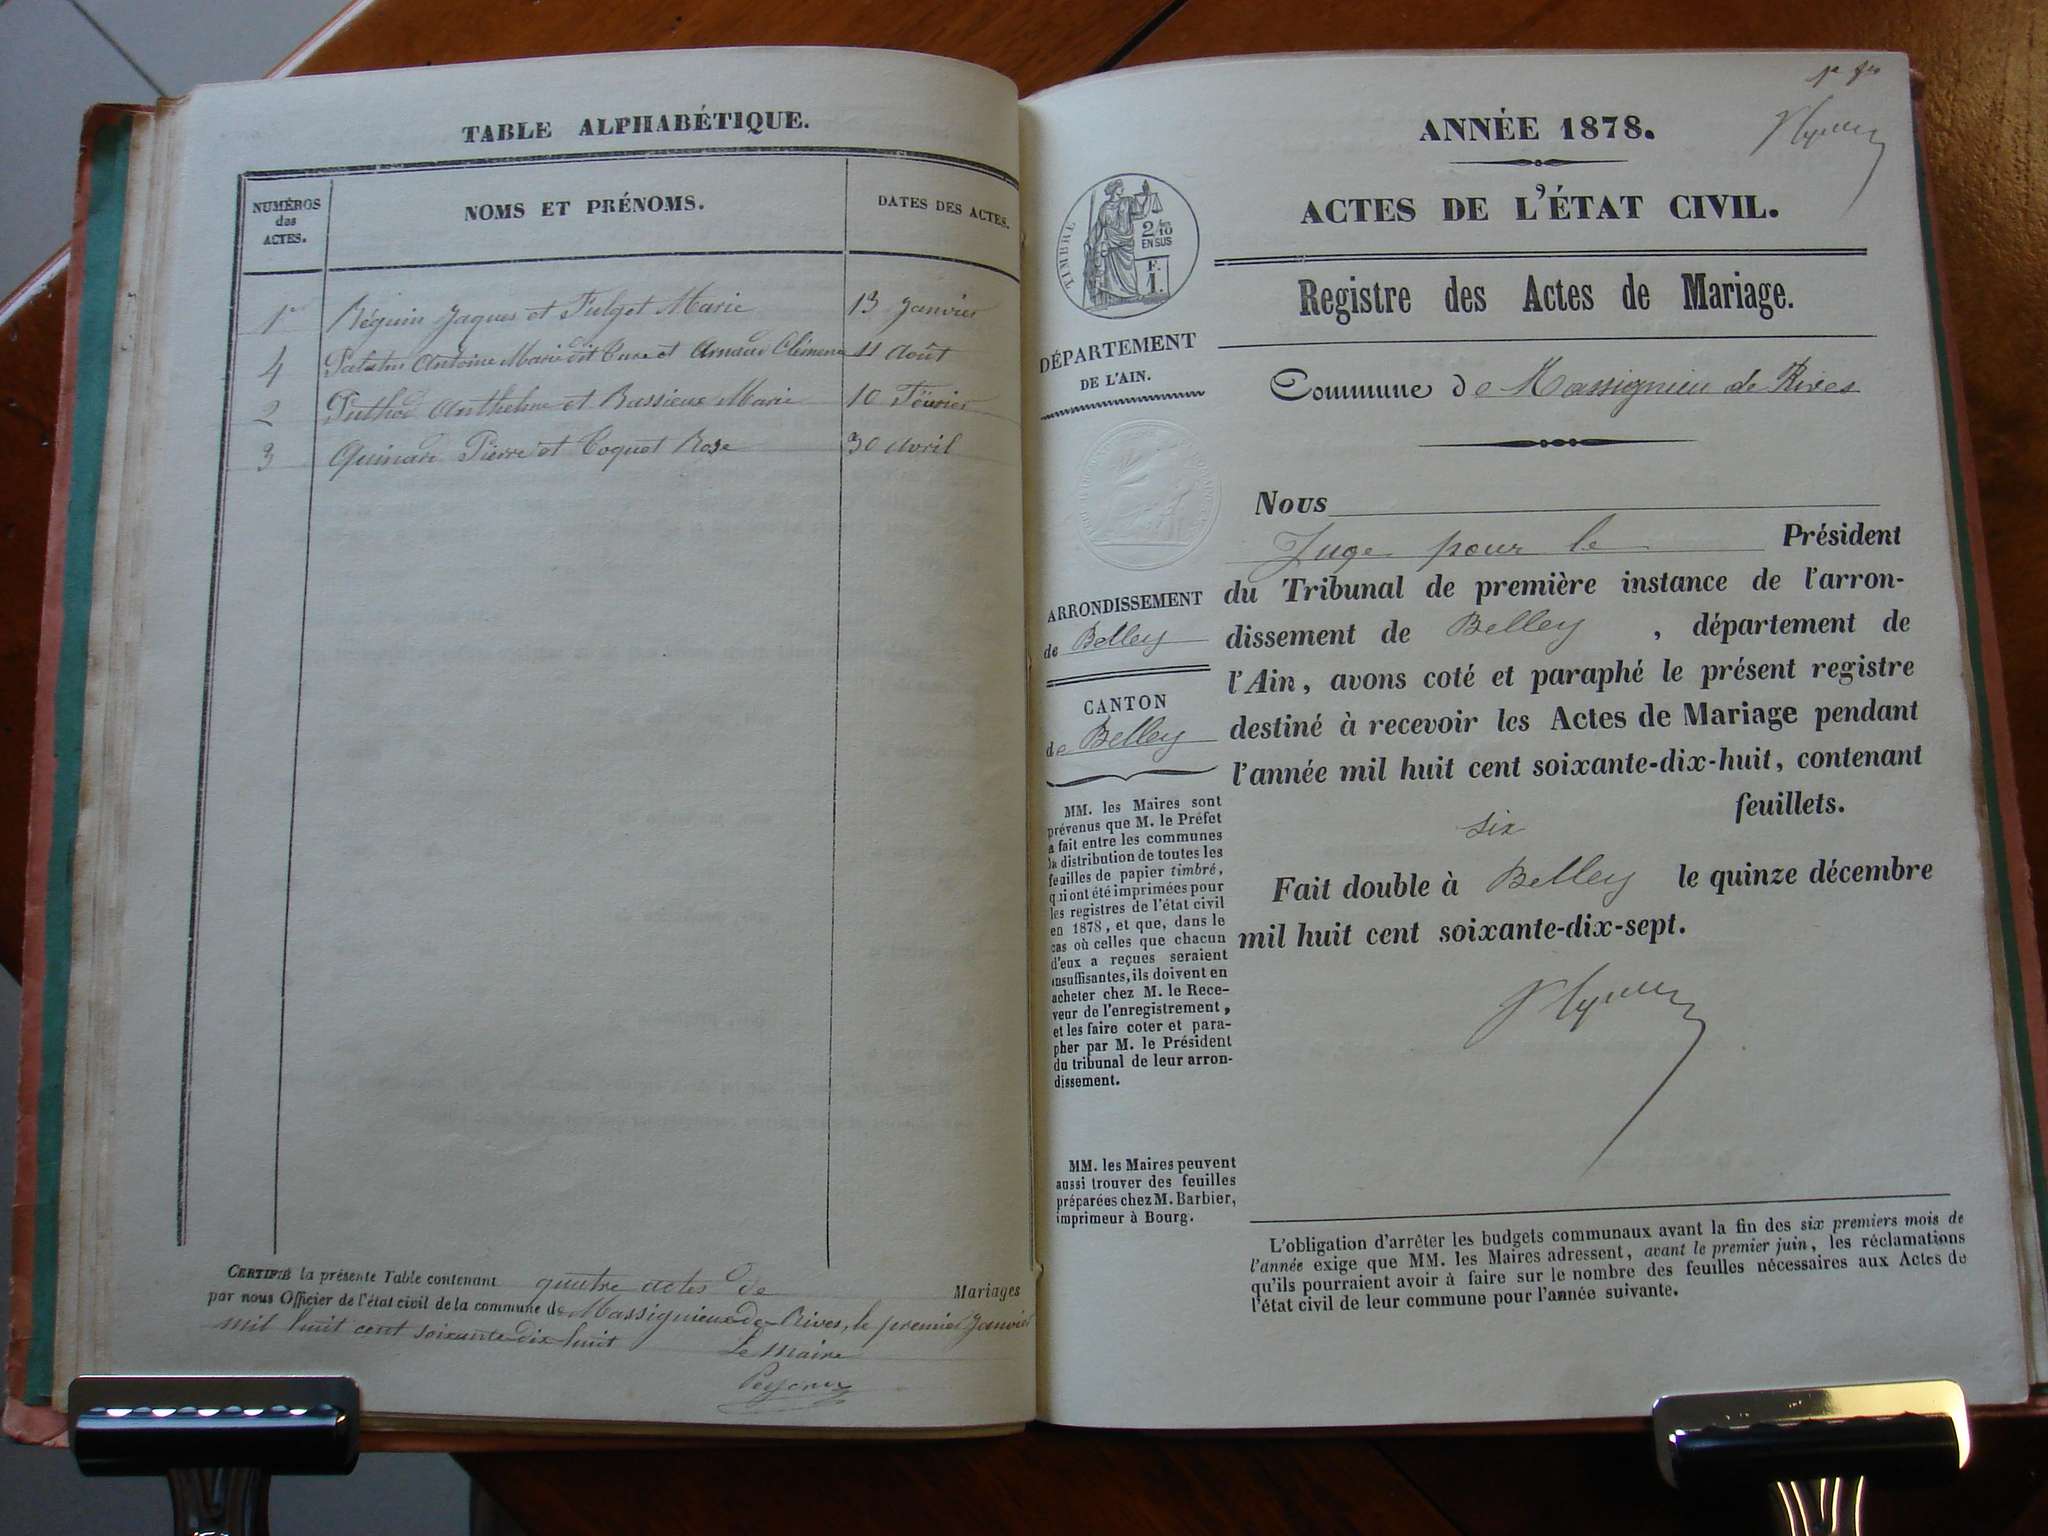 TABLE ALPHABÉTIQUE.
NUMÉROS
des
ACTES.
NOMS ET PRÉNOMS.
DATES DES ACTES.
1er Réguin Jaques et Fulget Marie 13 Janvier
4 Antoine Marie dit et Arnaud 11 Août
2 Puthod Anthelme et Bussieux Marie 10 Février
3 Quinard Pierre et Coquet Rose 30 Avril
CERTIFIÉ la présente Table contenant quatre actes de Mariages
par nous Officier de l'état civil de la commune de Massignieu de Rives, le premier Janvier
mil huit cent soixante dix huit
Le Maire
ANNÉE 1878.
ACTES DE L'ÉTAT CIVIL.
TIMBRE
2/10
EN SUS
F.
1.
Registre des Actes de Mariage.
DÉPARTEMENT
DE L'AIN.
Commune de Massignieu de Rives
ARRONDISSEMENT
de Belley
CANTON
de Belley
MM. les Maires sont
prévenus que M. le Préfet
a fait entre les communes
la distribution de toutes les
feuilles de papier timbré,
qui ont été imprimées pour
les registres de l'état civil
en 1878, et que, dans le
cas où celles que chacun
d'eux a reçues seraient
insuffisantes, ils doivent en
acheter chez M. le Rece-
veur de l'enregistrement,
et les faire coter et para-
pher par M. le Président
du tribunal de leur arron-
dissement.
MM. les Maires peuvent
aussi trouver des feuilles
préparées chez M. Barbier,
imprimeur à Bourg.
Nous
Juge pour le Président
du Tribunal de première instance de l'arron-
dissement de Belley, département de
l'Ain, avons coté et paraphé le présent registre
destiné à recevoir les Actes de Mariage pendant
l'année mil huit cent soixante-dix-huit, contenant
six feuillets.
Fait double à Belley le quinze décembre
mil huit cent soixante-dix-sept.
L'obligation d'arrêter les budgets communaux avant la fin des six premiers mois de
l'année exige que MM. les Maires adressent, avant le premier juin, les réclamations
qu'ils pourraient avoir à faire sur le nombre des feuilles nécessaires aux Actes de
l'état civil de leur commune pour l'année suivante.